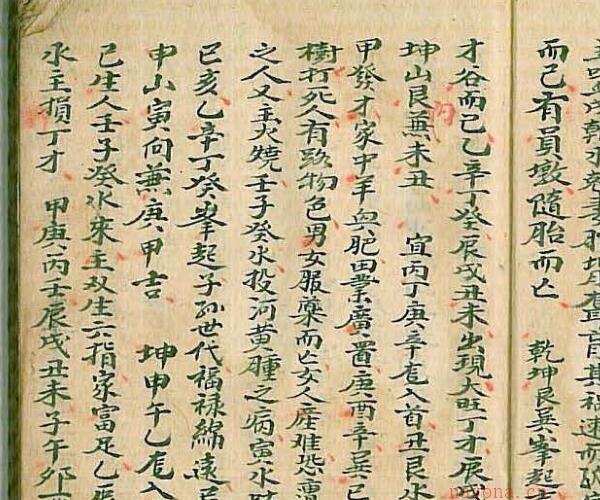 而已有員墩隨胎而亡　乾坤艮巽峯起
才谷而已乙辛丁癸辰戌丑未出現大旺丁才辰
坤山艮兼未丑　宜丙丁庚辛巵入首丑艮水
甲發才家中羊與肥田業廣置庚酉辛巽巳
樹打死人有跷物色男女服藥而亡女人産难恐
之人又主火燒壬子癸水投河黄腫之病寅水
巳亥乙辛丁癸峯起子孙世代福禄綿遠
申山寅向兼庚甲吉　坤申午乙巵入
巳生人壬子癸水來主双生六指家富足乙
水主損丁才　甲庚丙壬辰戌丑未子午卯